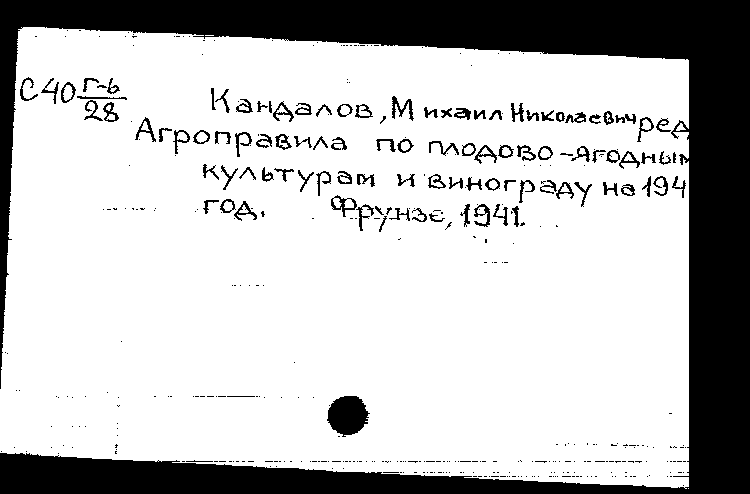 С40 г-6/28
Кандалов, Михаил Николаевич ред
Агроправила по плодово-ягодным
культурам и винограду на 194
год. Фрунзе, 1941.